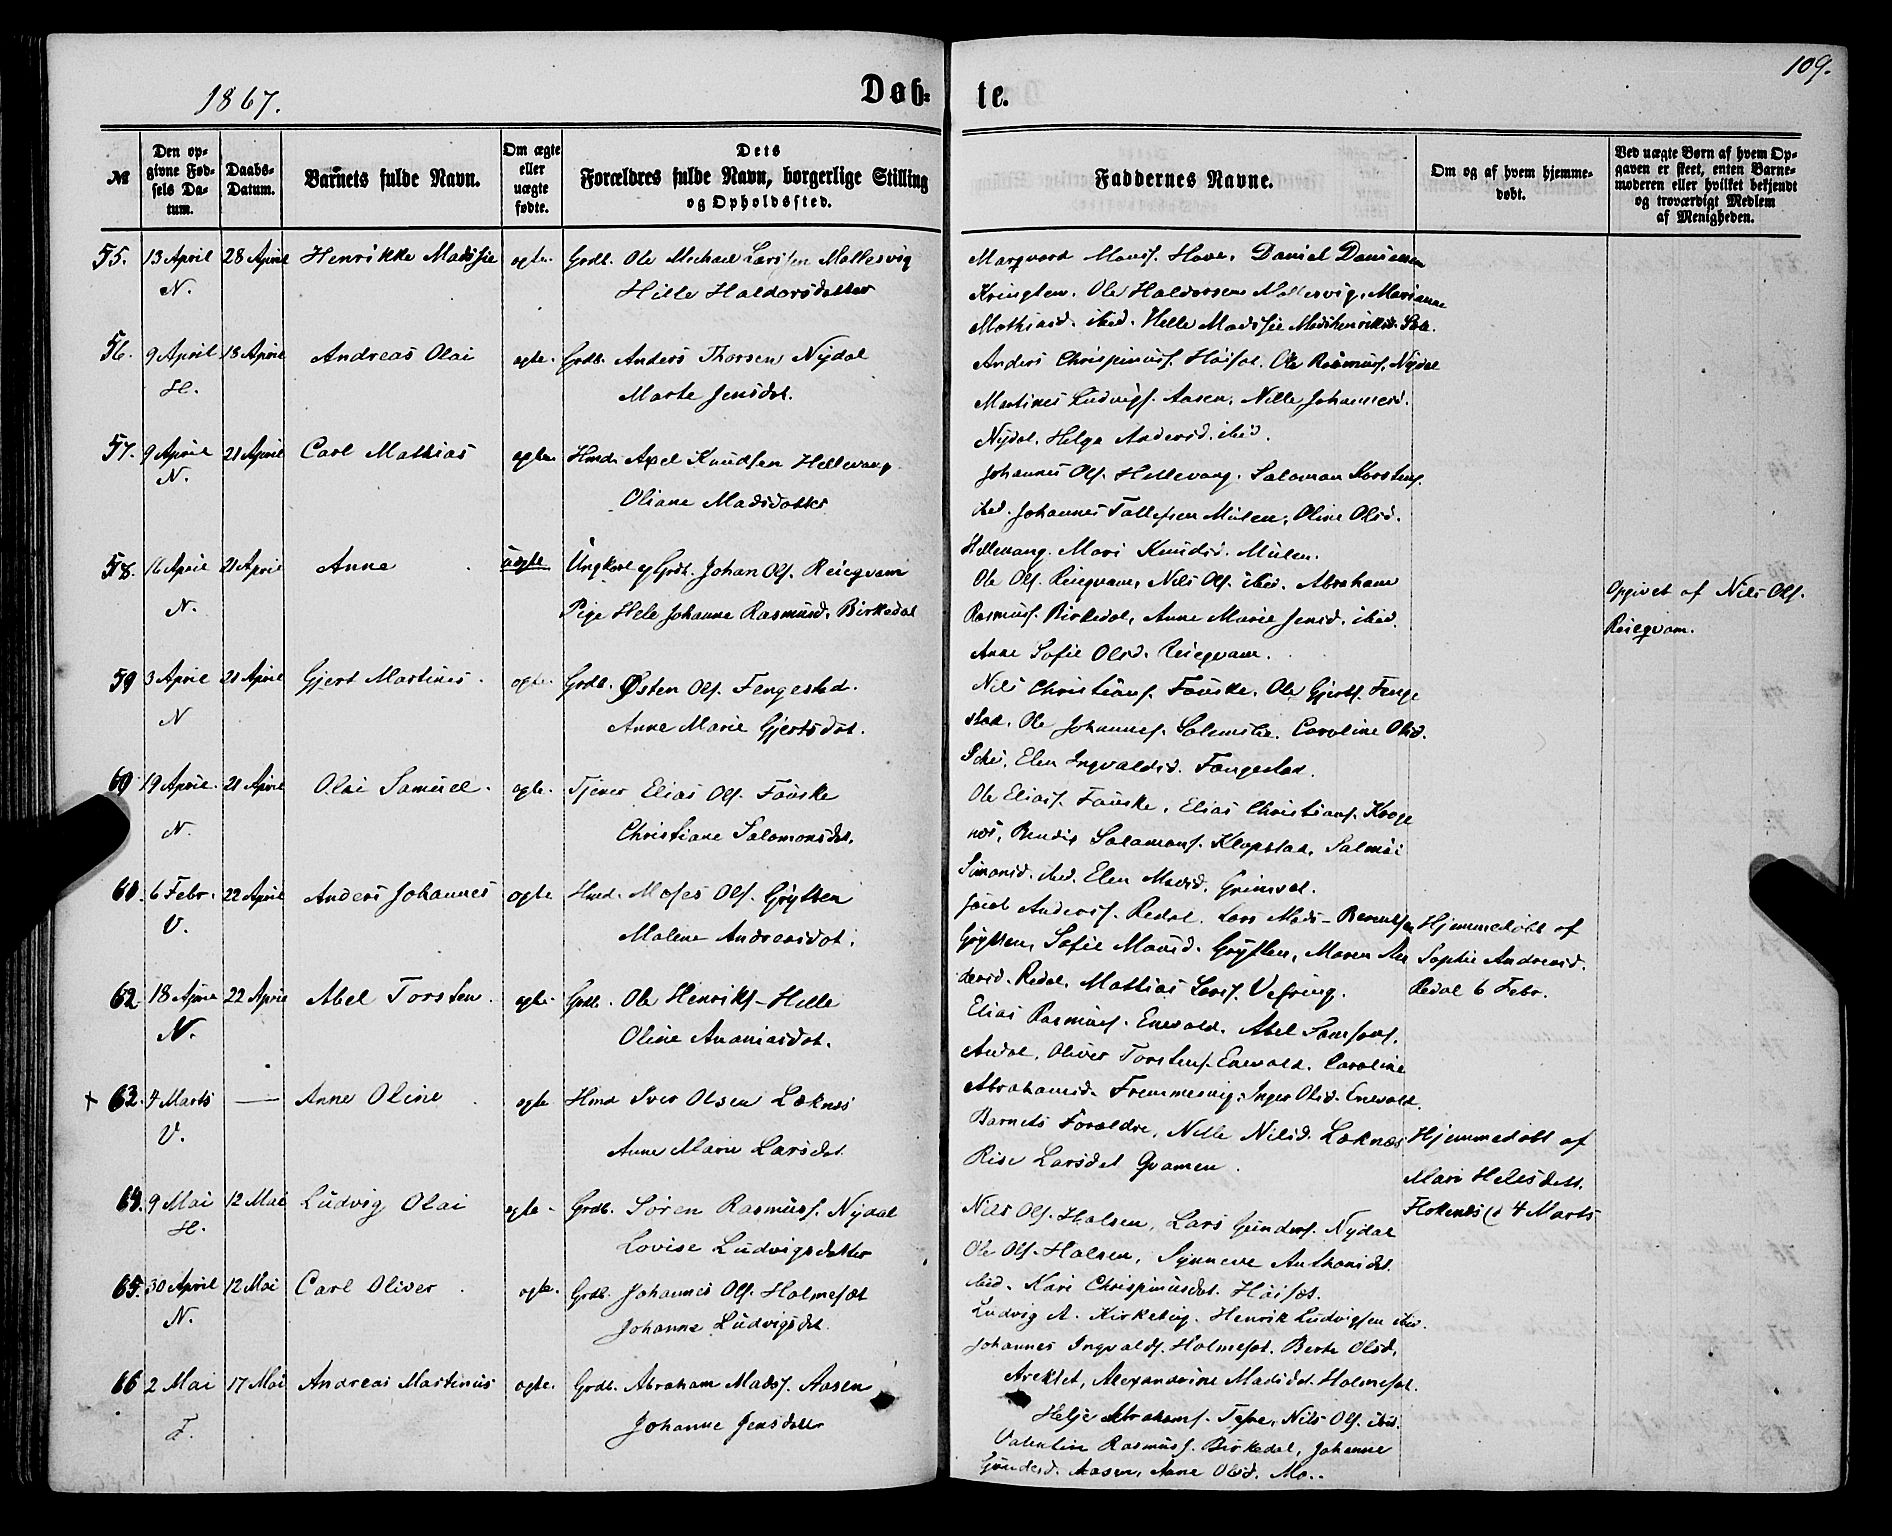 109.
1867.
Døb- te.
№
Den opgivne Fødsels Datum.
Daabs-Datum.
Barnets fulde Navn.
Om ægte eller uægte fødte.
Dets Forældres fulde Navn, borgerlige Stilling og Opholdssted.
Faddernes Navne.
Om og af hvem hjemmedøbt.
Ved uægte Børn af hvem Opgaven er skeet, enten Barnemoderen eller hvilket bekjendt og troværdigt Medlem af Menigheden.
55. 13 April 28 April Henrikke Madssie ægte. Grdb. Ole Michael Larssen Mollesvig
N. Hille Haldorsdatter
Marqvard Monsf. Hove, Daniel Danielsen
Kringlen. Ole Haldorsen Mollesvig, Marianne
Mathiasd. ibid. Helle Madssie Madshenriksd.
56. 9 April 18 April Andreas Olai ægte. Grdb. Anders Thorsen Nydal
H. Marte Jensdat.
Anders Chrispinusf. Høisæt. Ole Rasmusf. Nydal
Martines Ludvigf. Aasen, Nille Johannesd.
Nydal. Helga Andersd. ibid.
57. 9 April 21 April Carl Mathias ægte. Hmd. Axel Knudsen Hellevang
N. Oliane Madsdatter
Johannes Olf. Hellevang. Saloman Torstenf.
ibid. Johannes Tollefsen Mulen, Oline Olsd.
Hellevang. Mari Knudsd. Mulen.
58. 16 April 21 April Anne uægte Ungkarl og Grdb. Johan Olf. Reieqvam
N. Pige Hele Johanne Rasmusd. Birkedal
Ole Olf. Reieqvam, Nils Olf. ibid. Abraham
Rasmusf. Birkedal, Anne Marie Jensd. ibid.
Anne Sofie Olsd. Reieqvam.
Opgivet af Nils Olf.
Reieqvam.
59 3 April 21 April Gjert Martines. ægte. Grdb. Østen Olf. Fengestad.
N Anne Marie Gjertsdat.
Nils Christianf. Fauske. Ole Gjertsf. Fenge
stad. Ole Johannesf. Solemslie. Caroline Olsd.
Schei, Elen Ingvaldsd. Fængestad.
60 19 April. 21 April Olai Samuel. ægte. Tjener Elias Olf. Fauske
N. Christiane Salomonsdat.
Ole Eliasf. Fauske, Elias Christianf. Kroge
næs, Bendix Salamonf. Klopstad, Salmoi
Simonsd. ibid. Elen Madsd. Grimset.
61. 6 Febr. 22 April Anders Johannes ægte Hmd. Moses Olf. Grytten
V. Malene Andreasdat.
Jacob Andersf. Redal. Lars Mads-Berentsen
Grytten, Sofie Monsd. Grytten, Maren An
dersd. Redal, Mathias Larsf. Vefring.
Hjemmedøbt af
Sophie Andreasd.
Redal 6 Febr.
62. 18 April 22 April Abel Torsten. ægte Grdb. Ole Henriksf-Helle
N. Oline Ananiasdat.
Elias Rasmusf. Enevald. Abel Samsonf.
Ardal, Oliver Torstenf. Enevald. Caroline
Abrahamsd. Fremmesvig, Inger Olsd. Enevold.
+ 63. 4 Marts — Anne Oline ægte Hmd Iver Olsen Leknæs
V. Anne Marie Larsdat
Barnets Forældre, Nille Nilsd. Leknæs
Rise Larsdat Qvamen.
Hjemmedøbt af
Mari Helesdatt.
Flokenæs d 4 Marts
64. 9 Mai 12 Mai Ludvig Olai ægte. Grdb. Søren Rasmusf. Nydal
H. Lovise Ludvigsdatter
Nils Olf. Halsen, Lars Gundersf. Nydal
Ole Olf. Halsen, Synneve Anthonidat.
ibid. Kari Chrispinusdat. Høisæt.
65. 30 April 12 Mai Carl Oliver ægte. Grdb. Johannes Olf. Holmesæt
N. Johanne Ludvigsdat
Ludvig A. Kirkebug. Henrik Ludvigsen ibid.
Johannes Ingvaldf. Holmesæt. Berte Olsd.
Areklet, Alexandrine Madsdat. Holmesæt.
66 2 Mai 17 Mai Andreas Martinus ægte. Grdb. Abraham Madsf. Aasen
F. Johanne Jensdatter
Helje Abrahamf. Tefre, Nils Olf. ibid.
Valentin Rasmusf. Birkedal, Johanne
Gundersd. Aasen, Anne Olsd. Mo.